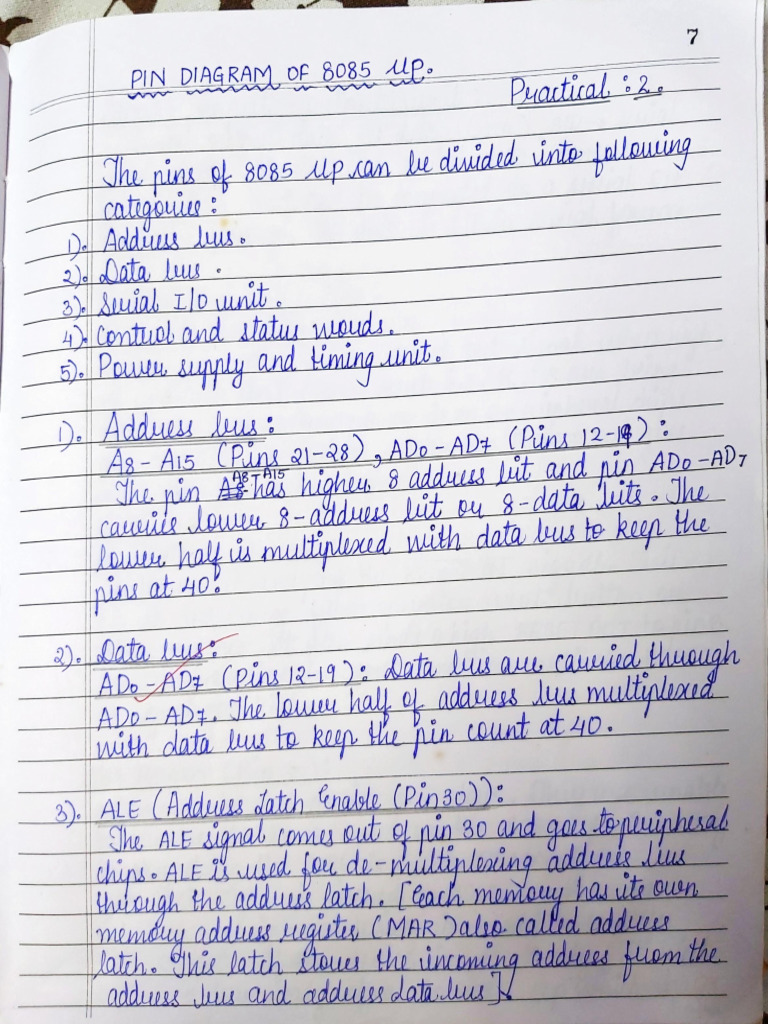 7
PIN DIAGRAM OF 8085 μP.
Practical : 2.
The pins of 8085 μP can be divided into following
categories :
1). Address bus.
2). Data bus .
3). Serial I/O unit.
4). Control and status words.
5). Power supply and timing unit.
1). Address bus :
A8 - A15 (Pins 21-28) , AD0 - AD7 (Pins 12-19) :
The pin A8 - A15 has higher 8 address bit and pin AD0 - AD7
carries lower 8-address bit or 8-data bits. The
lower half is multiplexed with data bus to keep the
pins at 40.
2). Data bus :
AD0 - AD7 (Pins 12-19) : Data bus are carried through
AD0 - AD7. The lower half of address bus multiplexed
with data bus to keep the pin count at 40.
3). ALE (Address Latch Enable (Pin 30)) :
The ALE signal comes out of pin 30 and goes to peripheral
chips. ALE is used for de-multiplexing address bus
through the address latch. [Each memory has its own
memory address register (MAR) also called address
latch. This latch stores the incoming address from the
address bus and address data bus].